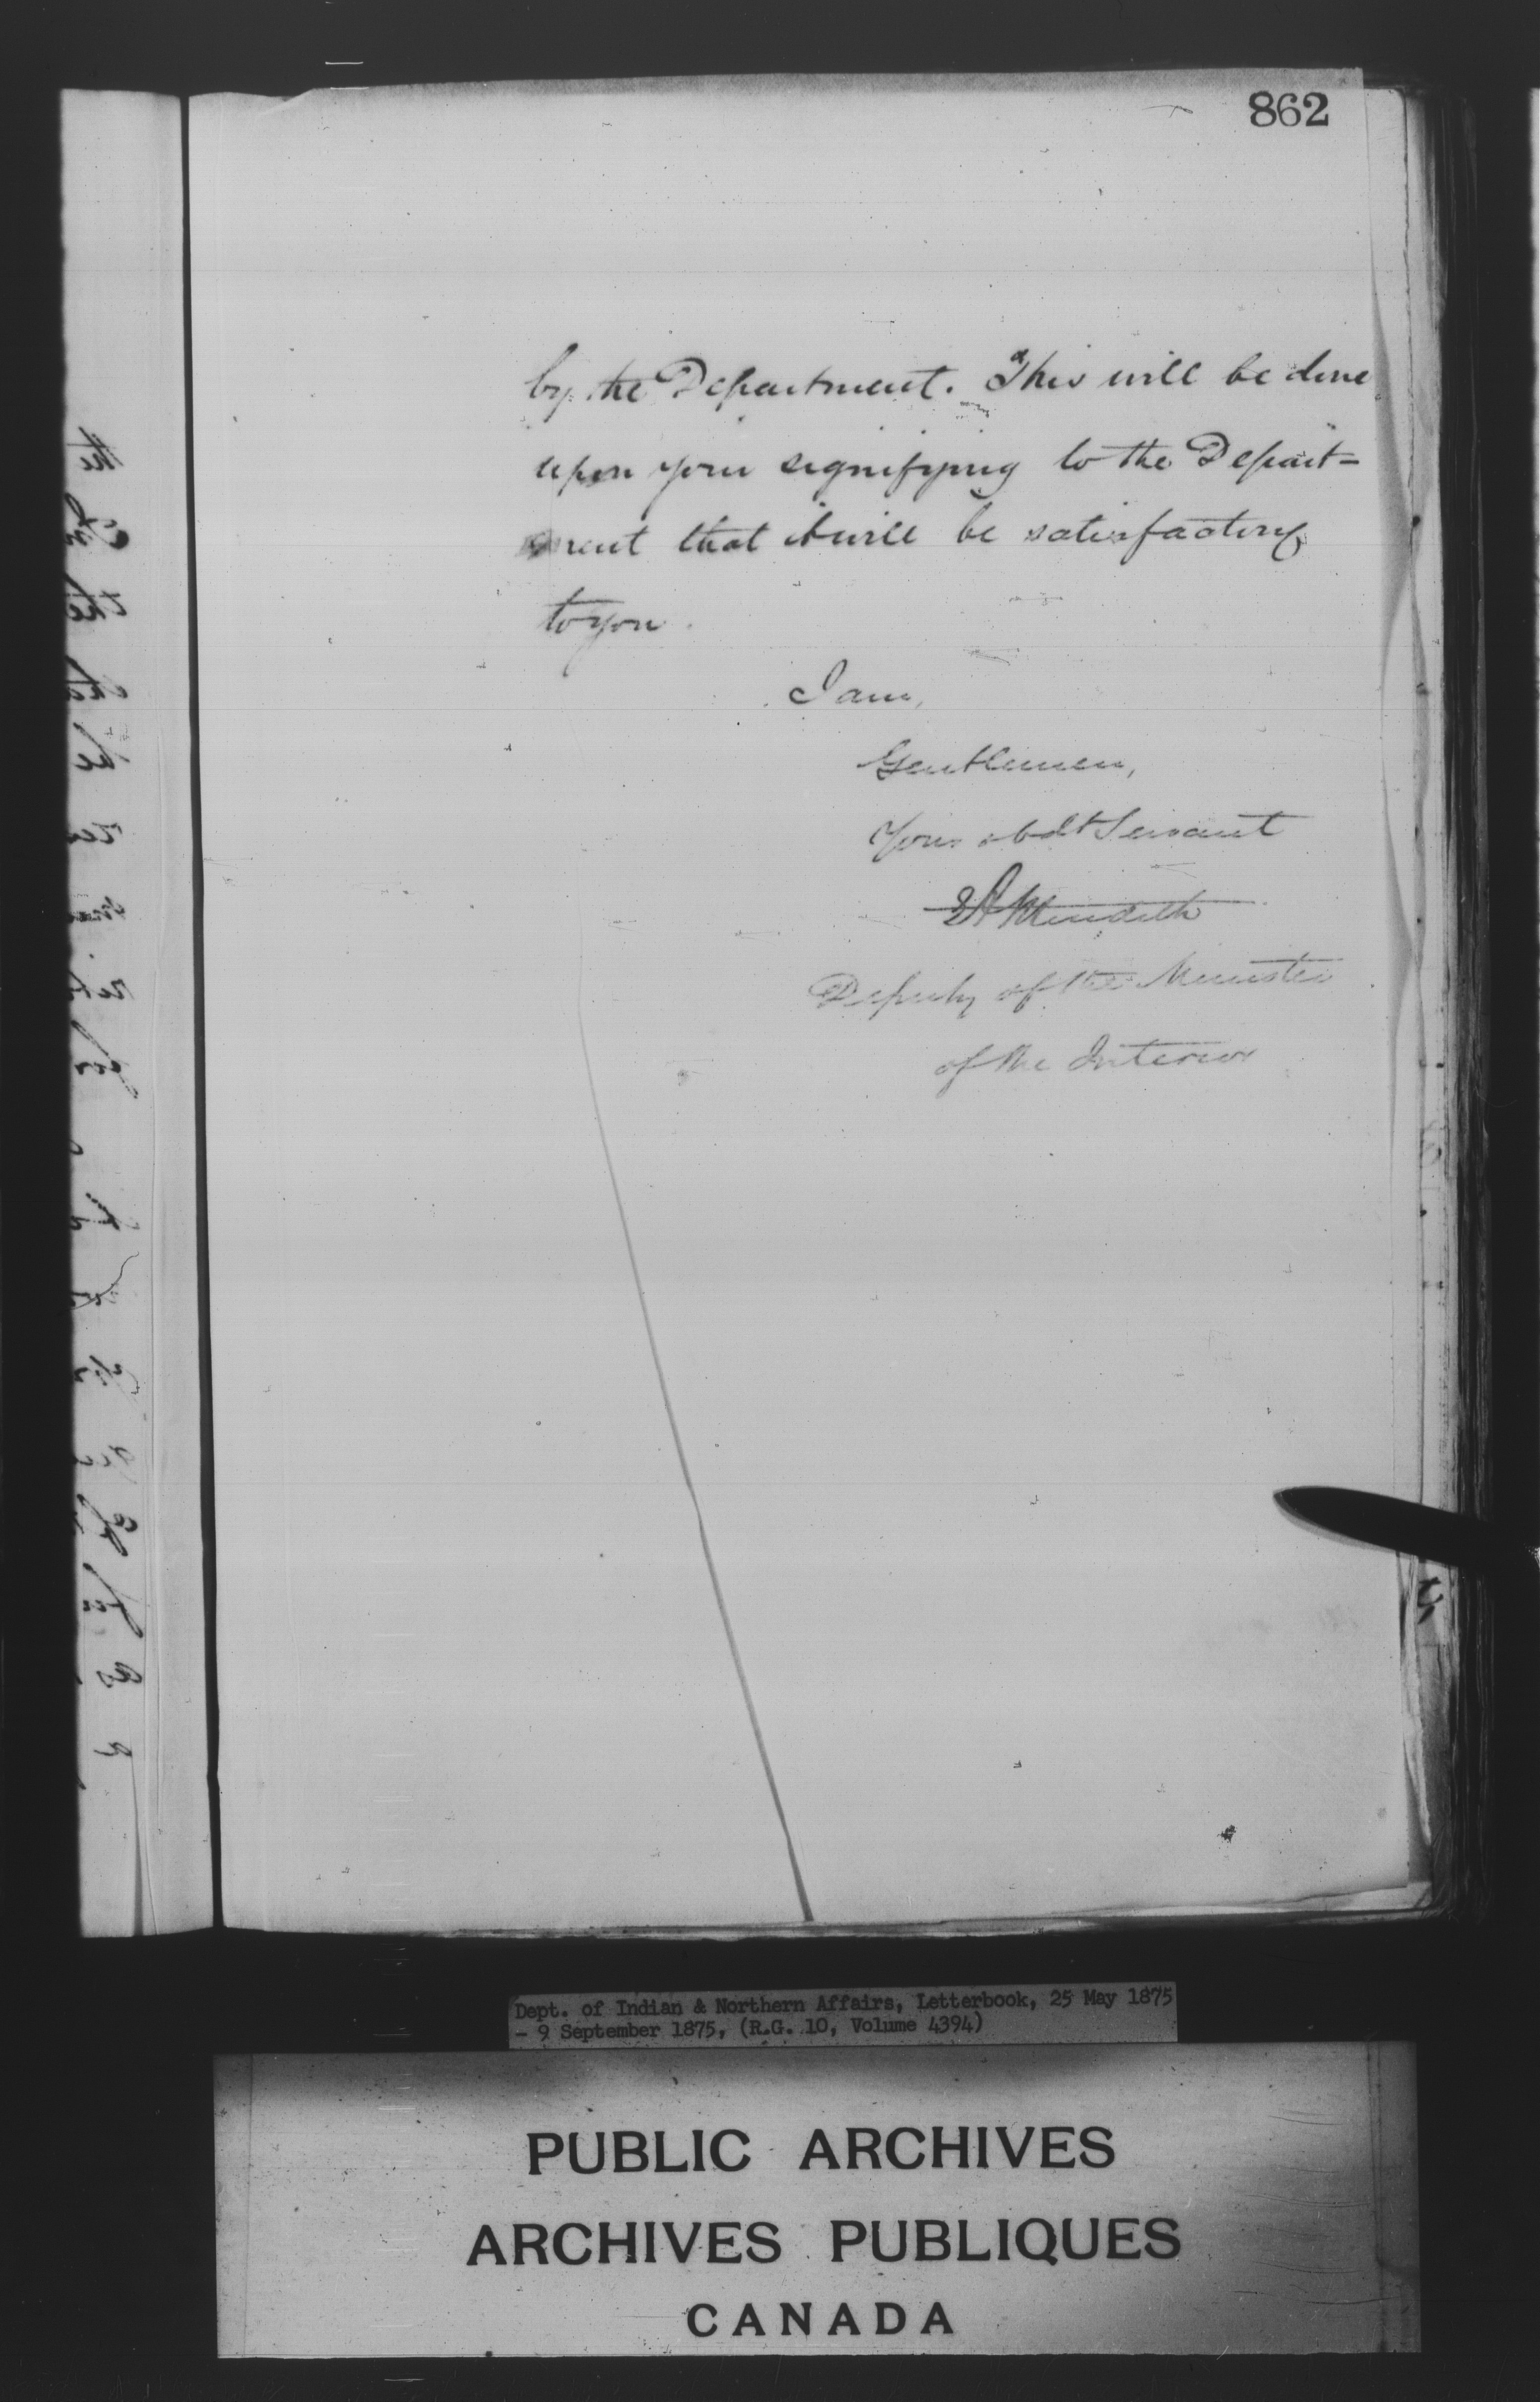 862
by the Department. This will be done
upon your signifying to the Depart=
ment that it will be satisfactory
to you.
I am,
Gentlemen,
Your obdt Servant
EA Meredith
Deputy of the Minister
of the Interior
Dept. of Indian & Northern Affairs, Letterbook, 25 May 1875
- 9 September 1875, (R.G. 10, Volume 4394)
PUBLIC ARCHIVES
ARCHIVES PUBLIQUES
CANADA